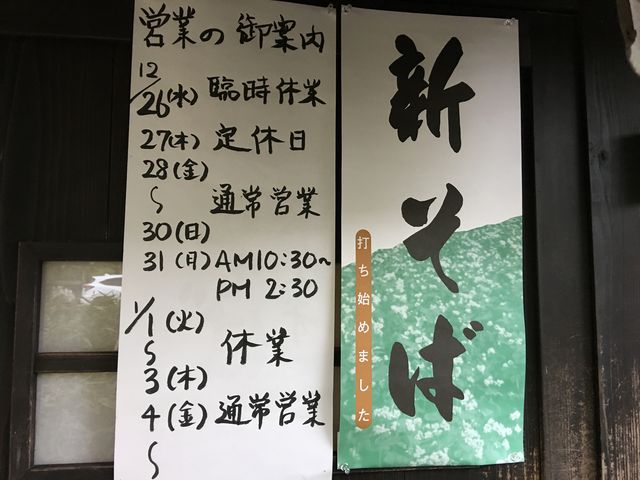 営業の御案内
12/26(水) 臨時休業
27(木) 定休日
28(金)
〜 通常営業
30(日)
31(月) AM10:30〜
PM 2:30
1/1(火)
〜 休業
3(木)
4(金) 通常営業
〜
新そば
打ち始めました